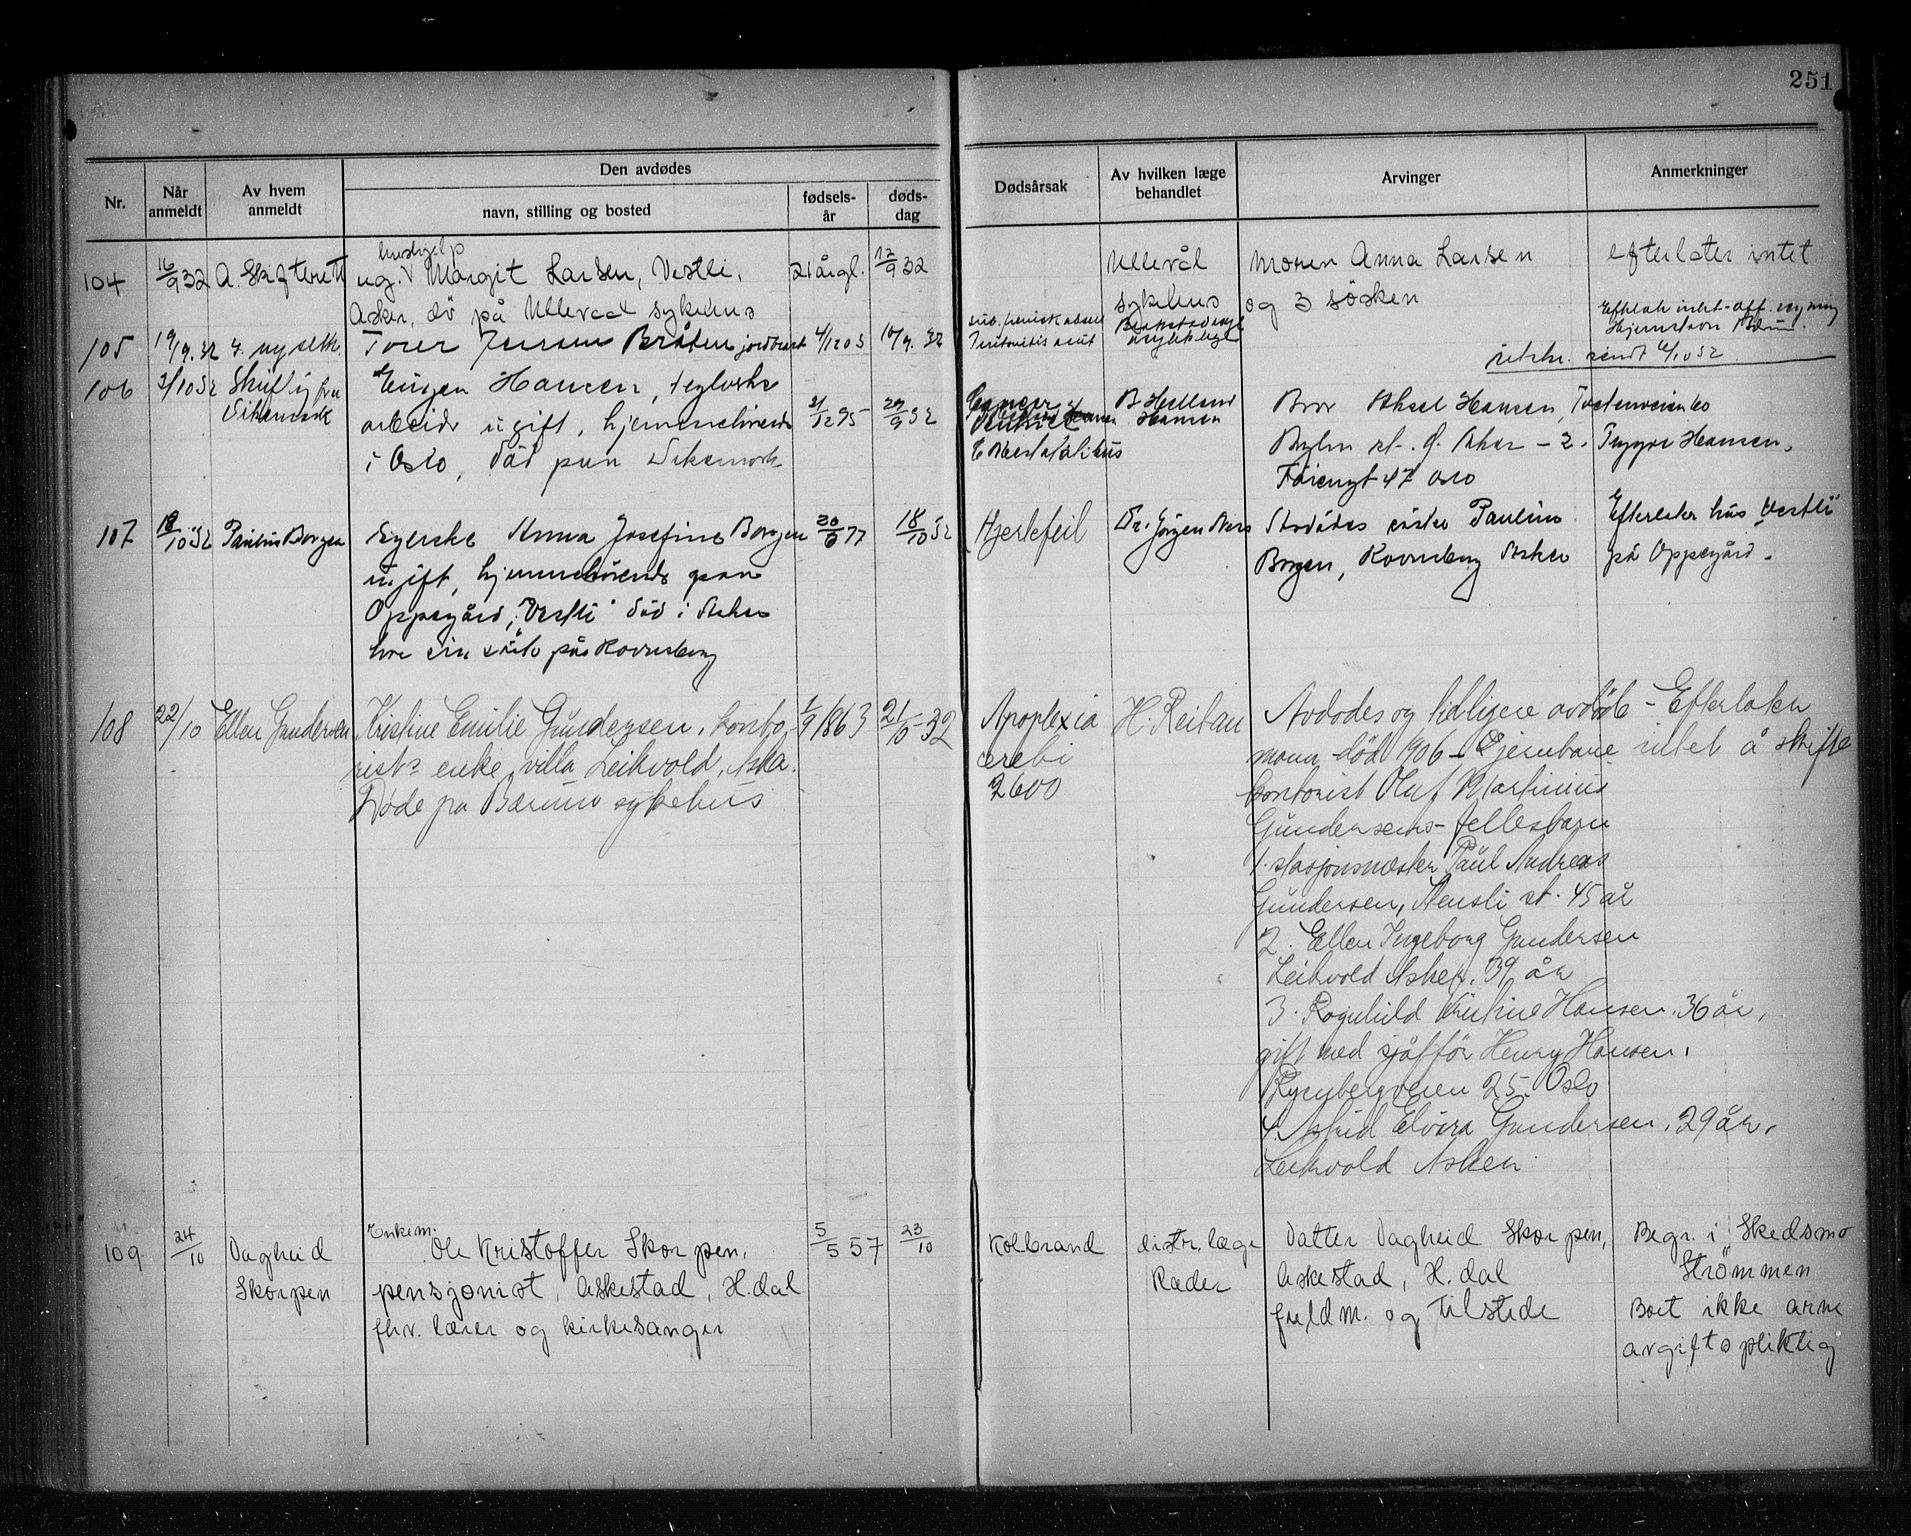 251
Den avdødes
Nr.
Når anmeldt
Av hvem anmeldt
navn, stilling og bosted
fødsels-år
døds-dag
Dødsårsak
Av hvilken læge behandlet
Arvinger
Anmerkninger
104 16/9 32 A. Skifterett
hushjelp
ug. V Margit Larsen, Vestli,
Asker, dö på Ullevål sykehus
21 årgl. 12/9 32
Ullevål
sykehus
Moren Anna Larsen
og 3 søsken
efterlater intet
105 19/9. 32
Torer Jensen Bråten
4/12 05 10/9. 32
Peritonitis acut
Efterlatt intet - off.
utskr. sendt 4/10 32
106 3/10 32
Eugen Hansen,
arbeider ugift, hjemmehörende
i Oslo, död paa Dikemark
21/12 95 29/9 32
B Helland
Hansen
Bror Aksel Hansen, Tvetenveien 60
Bryn st. Aker - 2. Trygve Hansen,
47 Oslo
107 18/10 32 Paulus Borgen
Syerske Anna Josefine Borgen
ugift, hjemmehörende paa
Oppegård, "Vestli" död i Asker
hos sin på Ravnsborg
20/6 77 18/10 32
Hjertefeil
Dr. Jörgen
Avdödes Paulus
Borgen, Ravnsborg Asker
Efterlater hus "Vestli"
på Oppegård.
108 22/10 Ellen Gundersen
Kristine Emilie Gundersen, konto
rist enke, villa Leikvold, Aska.
Døde på Bærum sykehus
1/9 1863 21/10-32
Apoplexia
cerebi
2600
H. Reitan
Avdødes og tidligere avdøde - Efterlater
mann død 1906 - Jernbane intet å skifte
kontorist Oluf Martinius
Gundersens - fellesbarn
1. stasjonsmester Paul Andreas
Gundersen, st. 45 år
2. Ellen Ingeborg Gundersen
Leikvold Asker. 39 år
3. Ragnhild Kristine Hansen. 36 år,
gift med sjåfför Henry Hansen,
25. Oslo
4. Astrid Elvira Gundersen, 29 år,
Leikvold Asker
109 24/10 Dagheid
Skorpen
Enkem.
Ole Kristoffer Skorpen,
pensjonist, Askestad, H.dal
fhv. lærer og kirkesanger
5/5 57 23/10
Kolbrand
distr. læge
Ræder
Datter Dagheid Skorpen,
Askestad, H. dal
fuldm. og tilstede
Begr. i Skedsmo
Strømmen
Boet ikke arve
avgiftspliktig